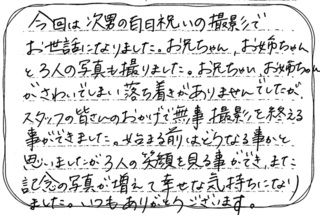 今回は次男の百日祝いの撮影で
お世話になりました。お兄ちゃん、お姉ちゃん
と3人の写真も撮りました。お兄ちゃんお姉ちゃん
がさわいでしまい落ち着きがありませんでしたが、
スタッフの皆さんのおかげで無事撮影を終える
事ができました。始まる前はどうなる事かと
思いましたが3人の笑顔を見る事ができ、また
記念の写真が増えて幸せな気持ちになり
ました。いつもありがとうございます。